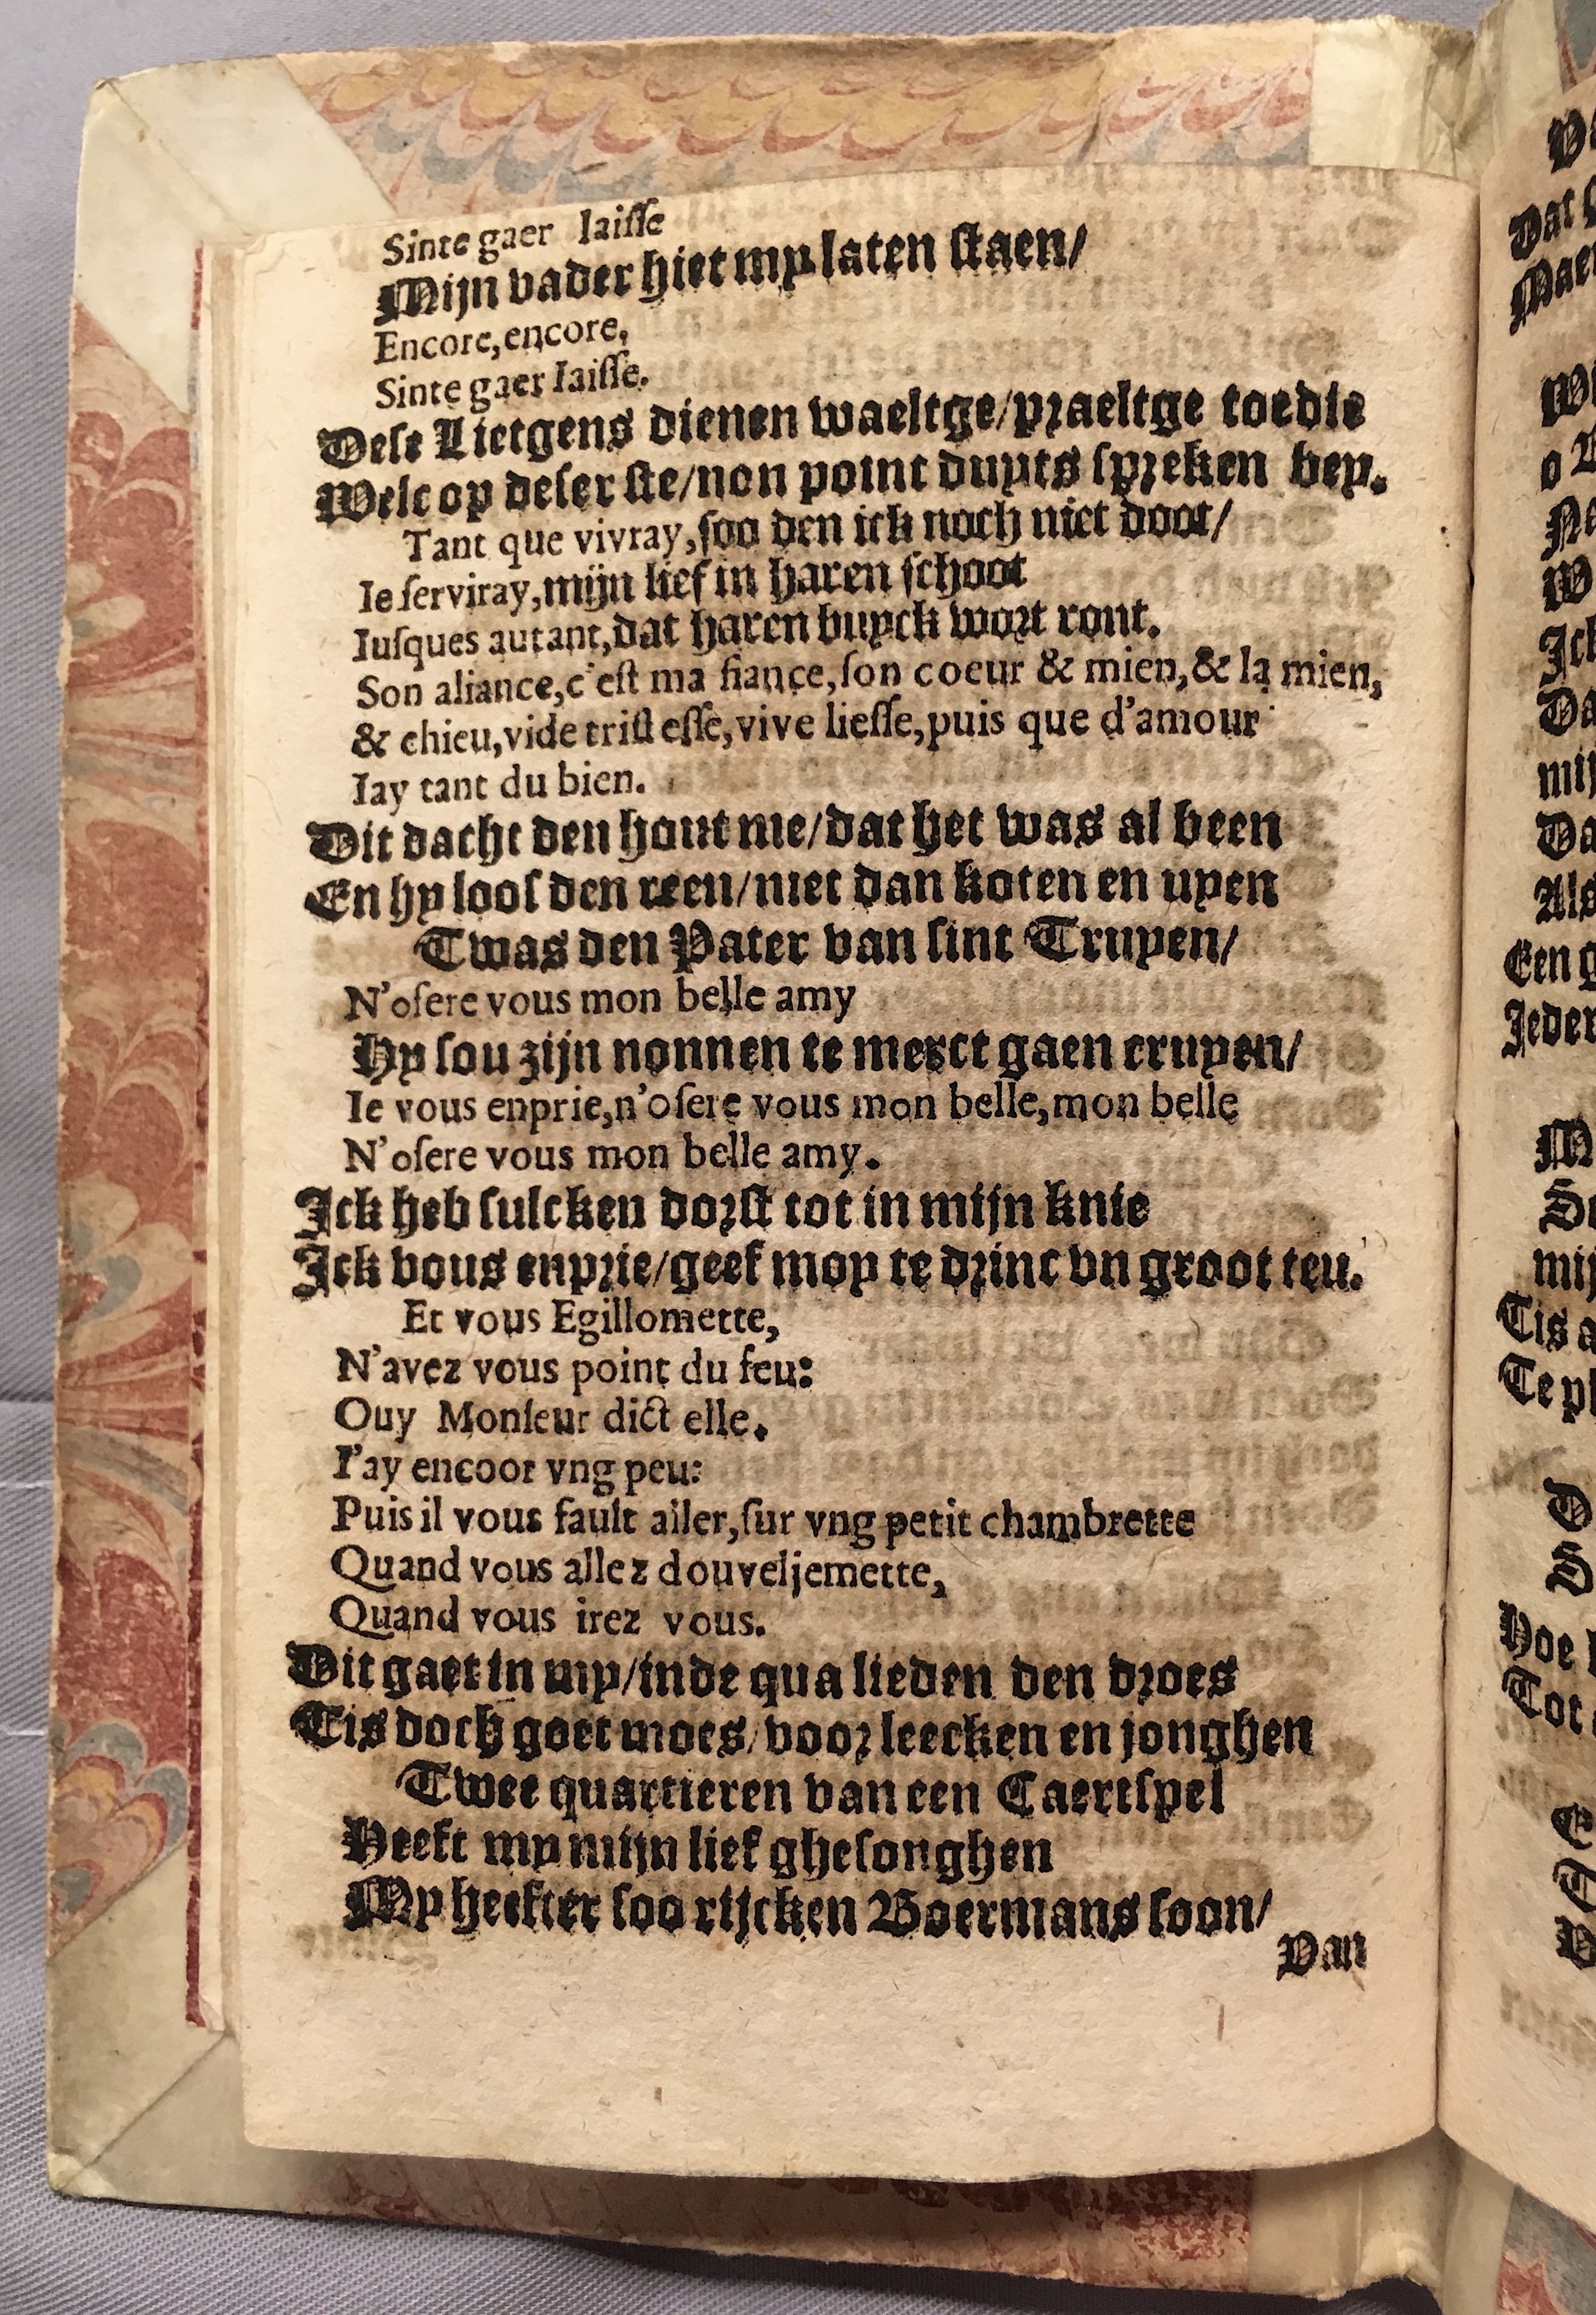 Sinte gaer Iaiſſe
Mijn vader hiet my laten ſtaen/
Encore, encore,
Sinte gaer Iaiſſe.
Deſe Lietgens dienen waeltge/praeltge toedie
Welc op deſer ſte/non point duyts ſpreken bey.
Tant que vivray, ſoo den ick noch niet doot/
Ie ſerviray, mijn lief in haren ſchoot
Iuſques autant, dat haren buyck wort ront.
Son aliance, c'eſt ma fiance, ſon coeur & mien, & la mien,
& chieu, vide triſteſſe, vive lieſſe, puis que d'amour
Iay tant du bien.
Dit dacht den hont me/dat het was al been
En hy loof den reen/niet dan koten en uyen
Twas den Pater van ſint Truyen/
N'oſere vous mon belle amy
Hy ſou zijn nonnen te merct gaen cruyen/
Ie vous enprie, n'oſere vous mon belle, mon belle
N'oſere vous mon belle amy.
Ick heb ſulcken dorſt tot in mijn knie
Ick vous enprie/geef moy te drinc vn groot teu.
Et vous Egillomette,
N'avez vous point du feu:
Ouy Monſeur dict elle.
I'ay encoor vng peu:
Puis il vous fault aller, ſur vng petit chambrette
Quand vous allez douveljemette,
Quand vous irez vous.
Dit gaet in my/inde qua lieden den droes
Tis doch goet moes/voor leecken en jonghen
Twee quartieren van een Caertſpel
Heeft my mijn lief gheſonghen
My heefter ſoo rijcken Boermans ſoon/
Van